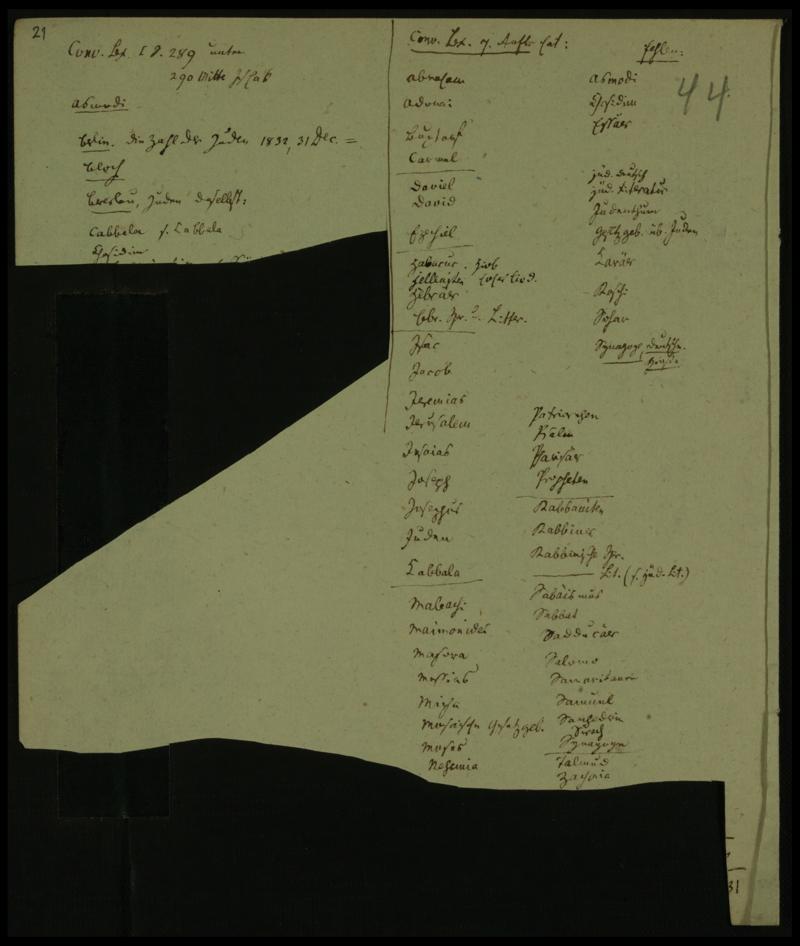 21
Conv. Lex. I S. 289 unten
290 Mitte
Asmodi
Berlin. die Zahl der Juden 1832, 31 Dec. =
Bloch
Breslau, Juden daselbst:
Cabbala s. Kabbala
Chasidim
Conv. Lex. 7. Aufl. hat:
Abraham
Adonai
Buxtorf
Carmel
Daniel
David
Ezechiel
Habacuc. Hiob
Hellenisten Hoheslied.
Hebräer
Hebr. Spr. u. Litter.
Isac
Jacob
Jeremias
Jerusalem
Jesaias
Joseph
Josephus
Juden
Kabbala
Maleachi
Maimonides
Masora
Messias
Micha
Mosaische Gesetzgeb.
Moses
Nehemia
Patriarchen
Psalm
Pharisäer
Propheten
Rabbaniten
Rabbiner
Rabbinische Spr.
Lit. (s. jüd. Lit.)
Sabäismus
Sabbat
Sadducäer
Salomo
Samaritaner
Samuel
Sanhedrin
Sirach
Synagoge
Talmud
Zacharia
fehlen:
Asmodi
Chasidim
Essäer
jüd. deutsch
jüd. Literatur
Judenthum
Gesetzgeb. üb. Juden
Karäer
Raschi
Sohar
Synagoge, deutsche.
44
31